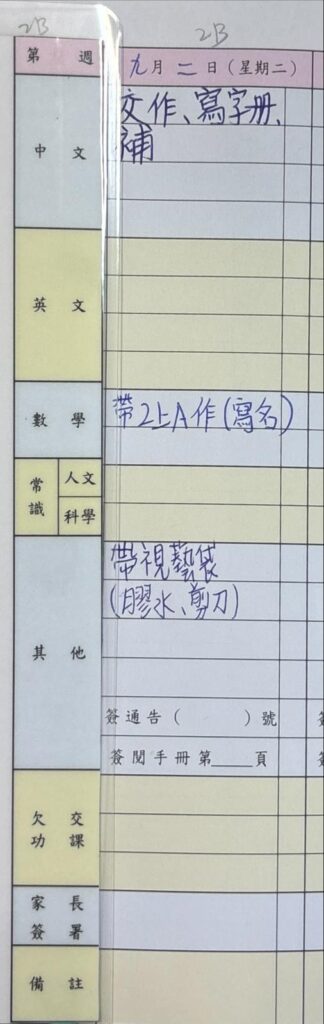 2B 2B
第 週 九月二日(星期二)
中文 交作、寫字冊、
補
英文
數學 帶2上A作(寫名)
常識 人文
科學
其他 帶視藝袋
(膠水、剪刀)
簽通告( )號
簽閱手冊第____頁
欠交功課
家長簽署
備註